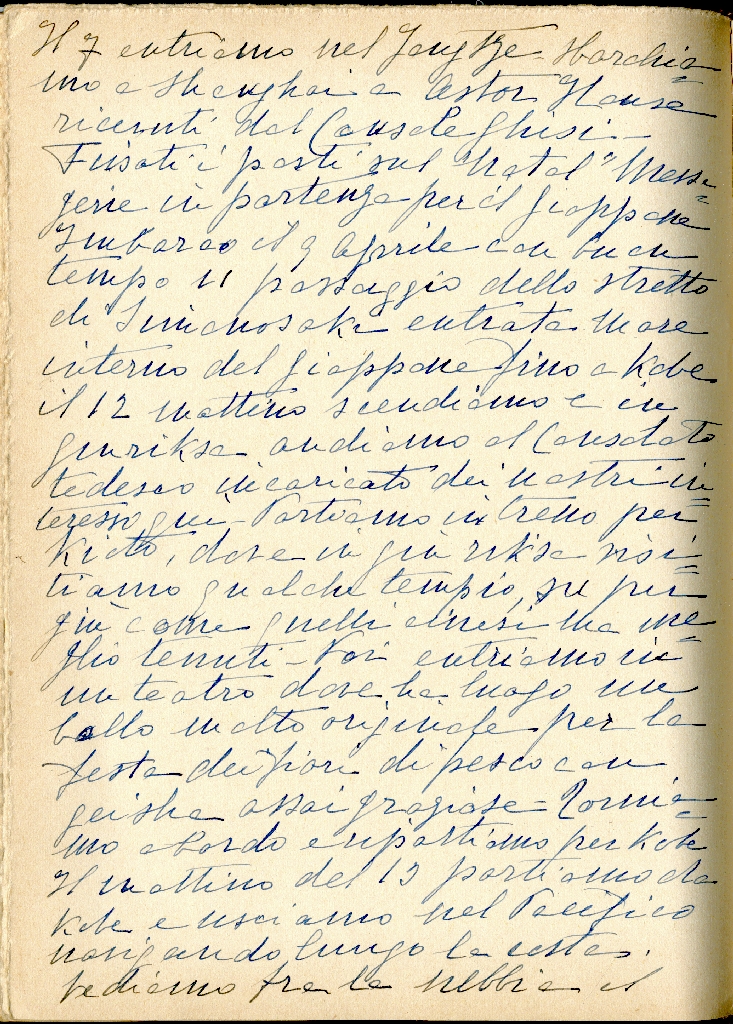 Il 7 entriamo nel Jangtze - Sbarchia=
mo a Shanghai a Astor House
ricevuti dal Console Ghisi -
Fissati i posti sul "Natal" Messa=
gerie in partenza per il Giappone
Imbarco il 9 Aprile con buon
tempo il passaggio dello stretto
di Simonosaki entrata mare
interno del Giappone fino a Kobe
il 12 mattino scendiamo e in
ginriksa andiamo al Consolato
tedesco incaricato dei nostri in=
teressi qui - Partiamo in treno per
Kioto, dove in gin riksa visi=
tiamo qualche tempio, su per
giù come quelli cinesi ma me=
glio tenuti - Poi entriamo in
un teatro dove ha luogo un
ballo molto originale per la
festa dei fiori di pesco con
geisha assai graziose - Tornia=
mo a bordo e ripartiamo per Kobe
Il mattino del 13 partiamo da
Kobe e usciamo nel Pacifico
navigando lungo la costa.
Vediamo fra la nebbia il